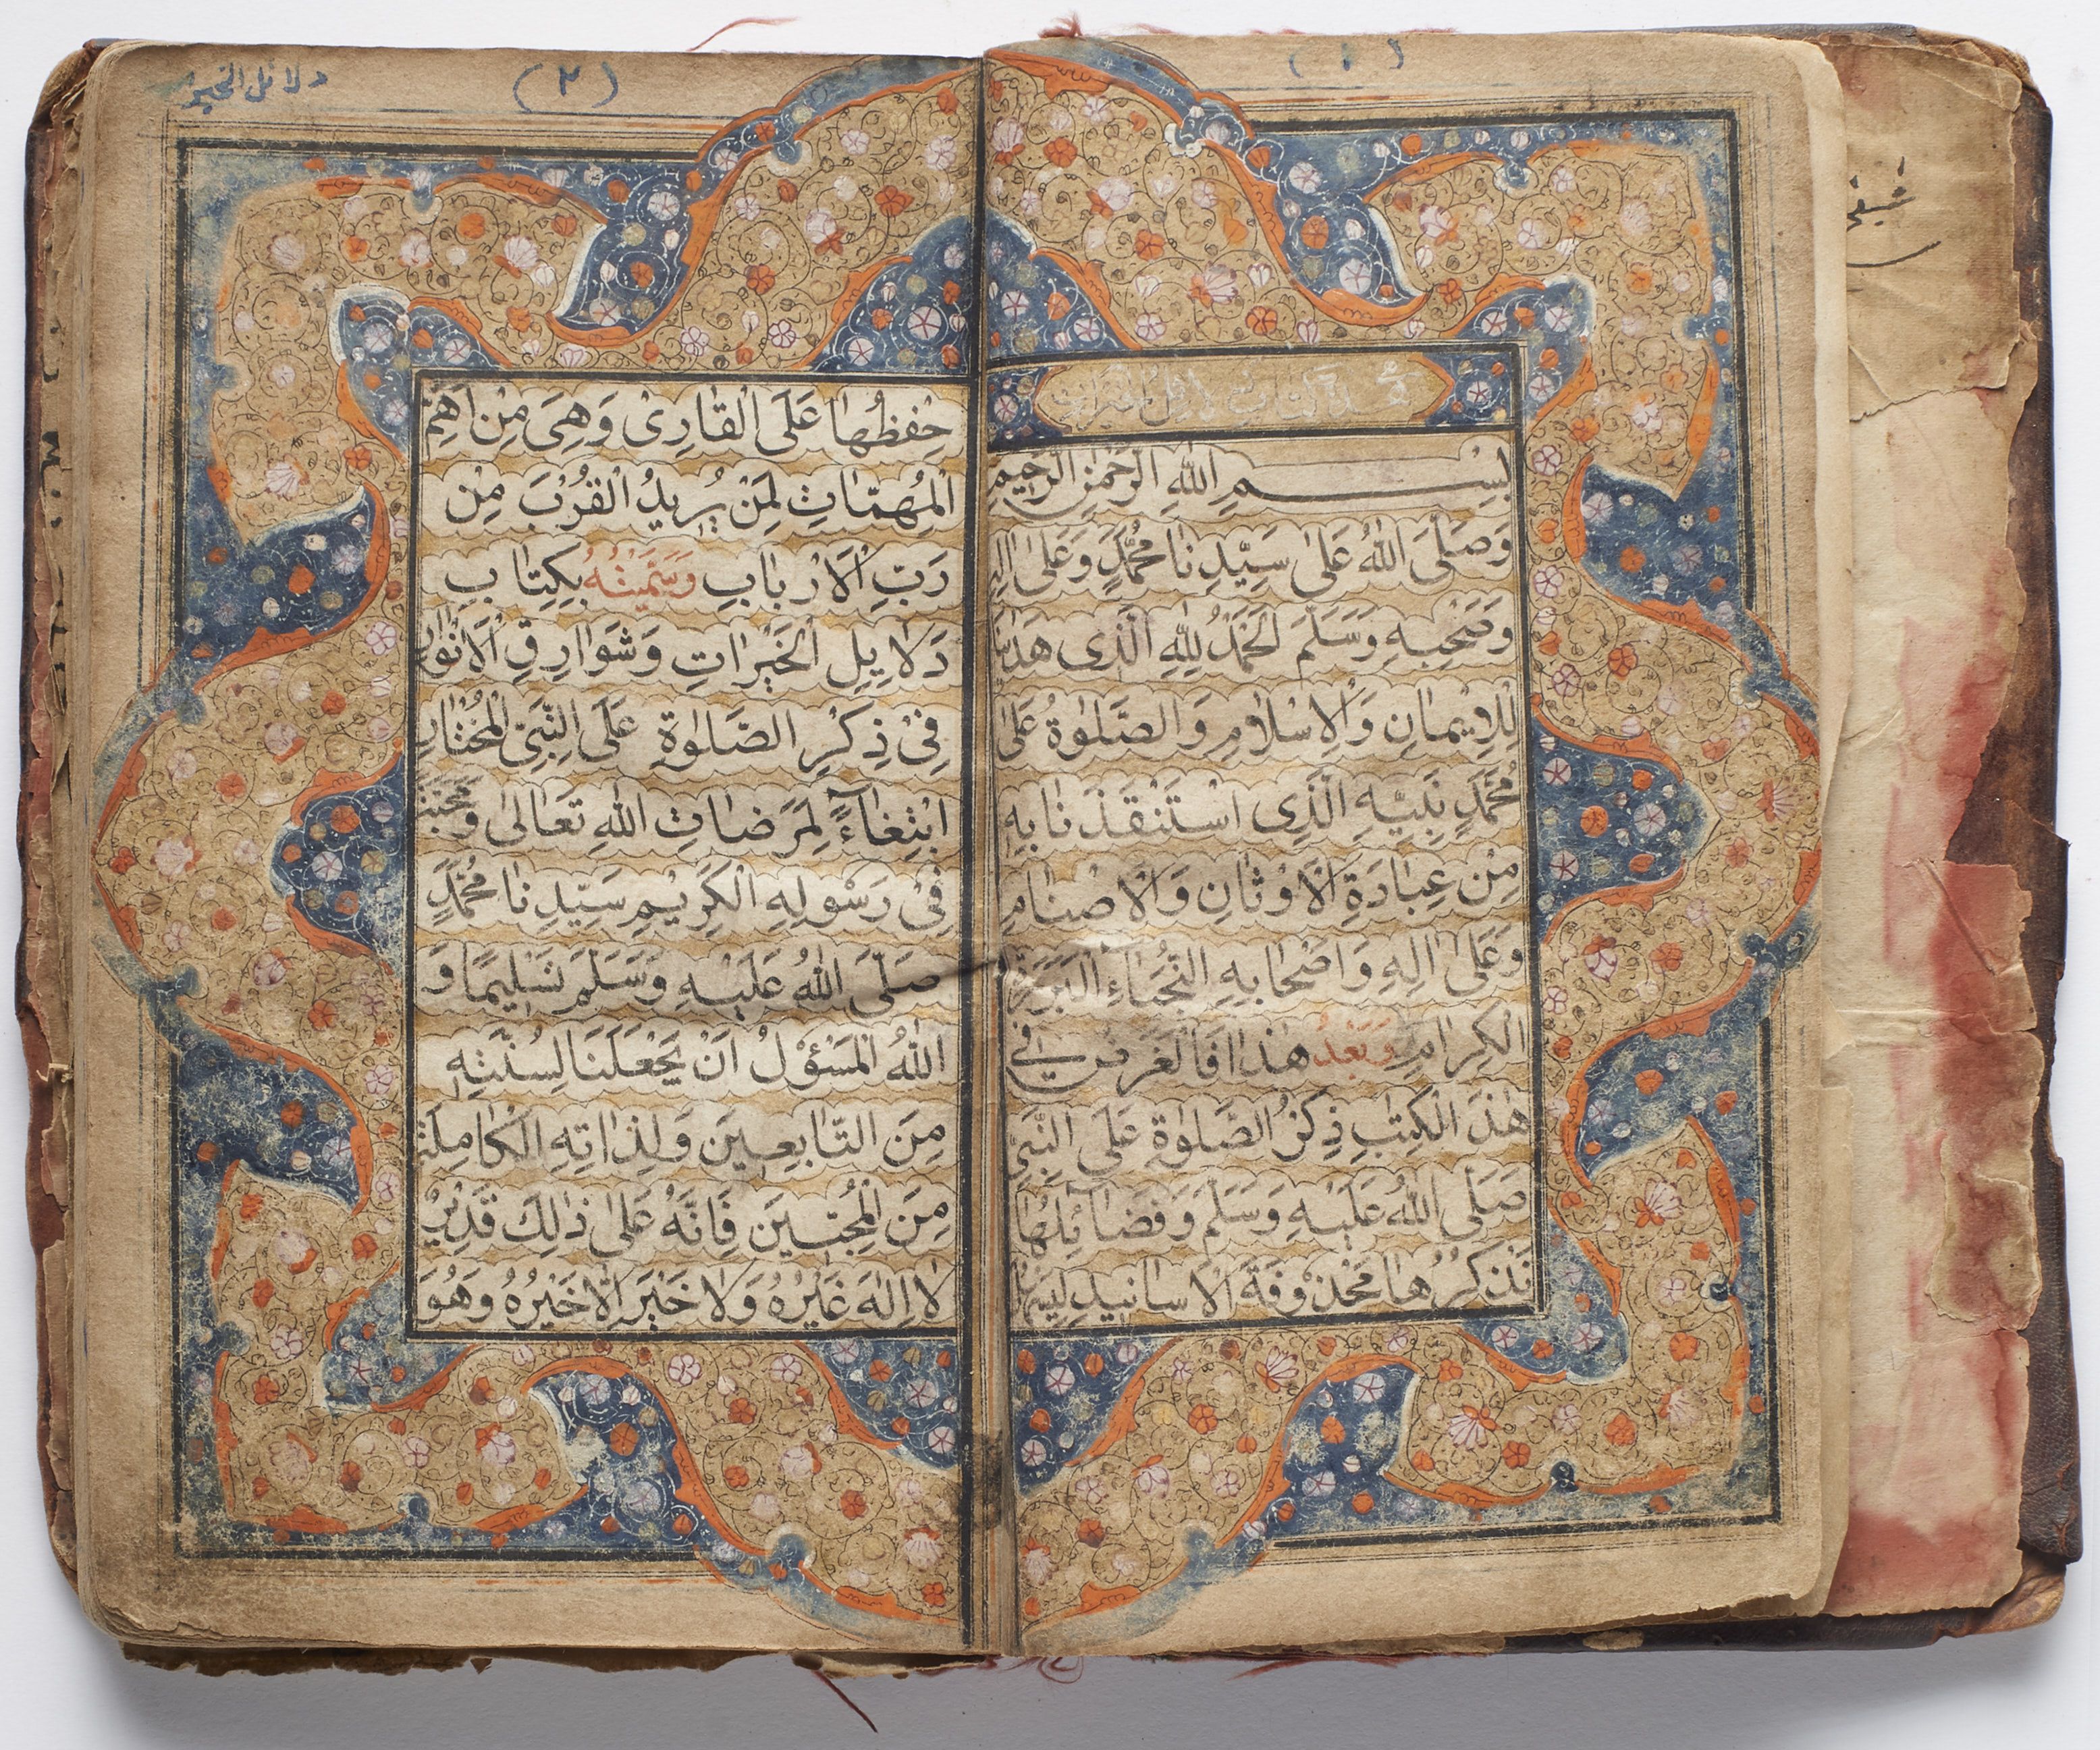 (١)
هذا كتاب دلائل الخيرات
بِسْمِ اللهِ الرَّحْمٰنِ الرَّحِيمِ
وَصَلَّى اللهُ عَلٰى سَيِّدِنَا مُحَمَّدٍ وَعَلٰى اٰلِهٖ
وَصَحْبِهٖ وَسَلَّمَ اَلْحَمْدُ لِلّٰهِ الَّذِى هَدٰىنَا
لِلْاِيْمَانِ وَالْاِسْلَامِ وَالصَّلٰوةُ عَلٰى
مُحَمَّدٍ نَبِيِّهِ الَّذِى اسْتَنْقَذَنَا بِهٖ
مِنْ عِبَادَةِ الْاَوْثَانِ وَالْاَصْنَامِ
وَعَلٰى اٰلِهٖ وَاَصْحَابِهِ النُّجَبَآءِ الْبَرَرَةِ
الْكِرَامِ وَبَعْدُ هٰذَا فَالْغَرَضُ فِى
هٰذَ الْكِتٰبِ ذِكْرُ الصَّلٰوةِ عَلَى النَّبِىِّ
صَلَّى اللهُ عَلَيْهِ وَسَلَّمَ وَفَضَائِلُهَا
نَذْكُرُهَا مَحْذُوْفَةَ الْاَسَانِيْدِ لِيَسْهُلَ
دلائل الخير
(٢)
حِفْظُهَا عَلَى الْقَارِىْ وَهِىَ مِنْ اَهَمِّ
الْمُهِمَّاتِ لِمَنْ يُرِيْدُ الْقُرْبَ مِنْ
رَبِّ الْاَرْبَابِ وَسَمَّيْتُهُ بِكِتَابِ
دَلَايِلِ الْخَيْرَاتِ وَشَوَارِقِ الْاَنْوَارِ
فِىْ ذِكْرِ الصَّلٰوةِ عَلَى النَّبِىِّ الْمُخْتَارِ
ابْتِغَآءً لِمَرْضَاتِ اللهِ تَعَالٰى وَمَحَبَّةً
فِىْ رَسُوْلِهِ الْكَرِيْمِ سَيِّدِنَا مُحَمَّدٍ
صَلَّى اللهُ عَلَيْهِ وَسَلَّمَ تَسْلِيْمًا وَ
اللهُ الْمَسْؤُلُ اَنْ يَجْعَلَنَا لِسُنَّتِهٖ
مِنَ التَّابِعِيْنَ وَلِذَاتِهِ الْكَامِلَةِ
مِنَ الْمُحِبِّيْنَ فَاِنَّهُ عَلٰى ذٰلِكَ قَدِيْرٌ
لَا اِلٰهَ غَيْرُهُ وَلَا خَيْرَ اِلَّا خَيْرُهُ وَهُوَ